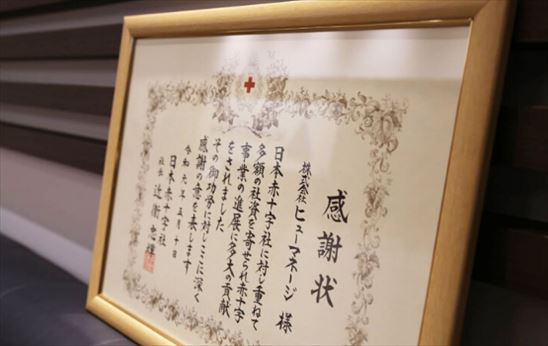 感謝状
株式会社 ヒューマネージ 様
日本赤十字社に対し重ねて
多額の社資を寄せられ赤十字
事業の進展に多大の貢献
をされました
その御功労に対しここに深く
感謝の意を表します
令和元年五月十日
日本赤十字社
社長 近衞忠煇